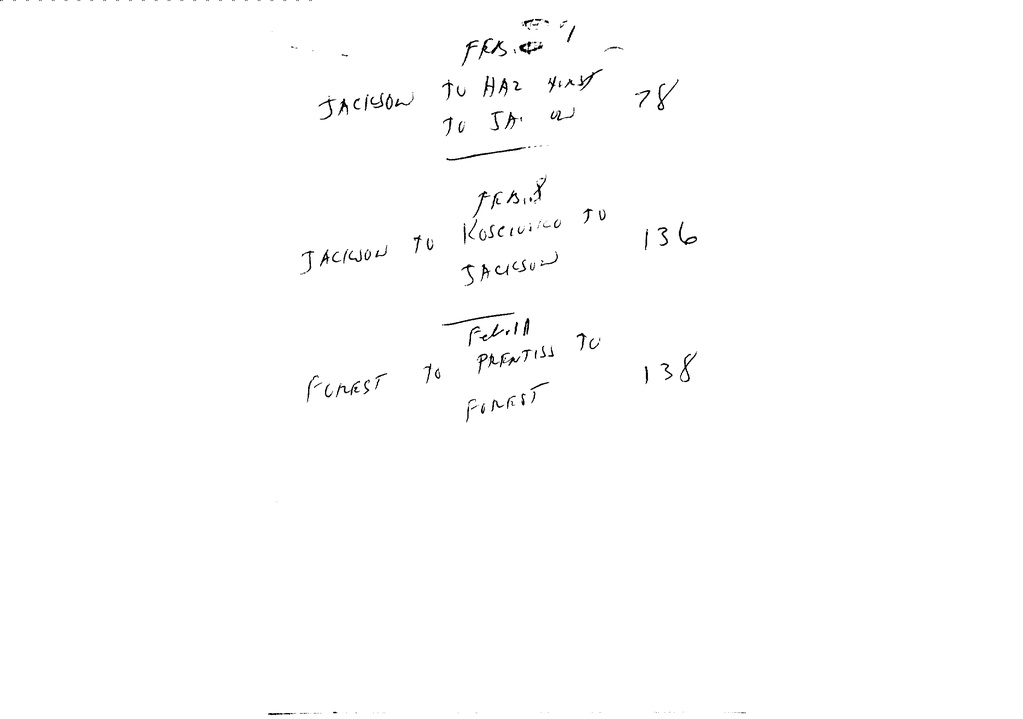 FEB. 7
JACKSON TO HAZ HURST 78
TO JA ON
FEB. 8
JACKSON TO KOSCIUSKO TO 136
JACKSON
Feb.
FOREST TO PRENTISS TO 138
FOREST